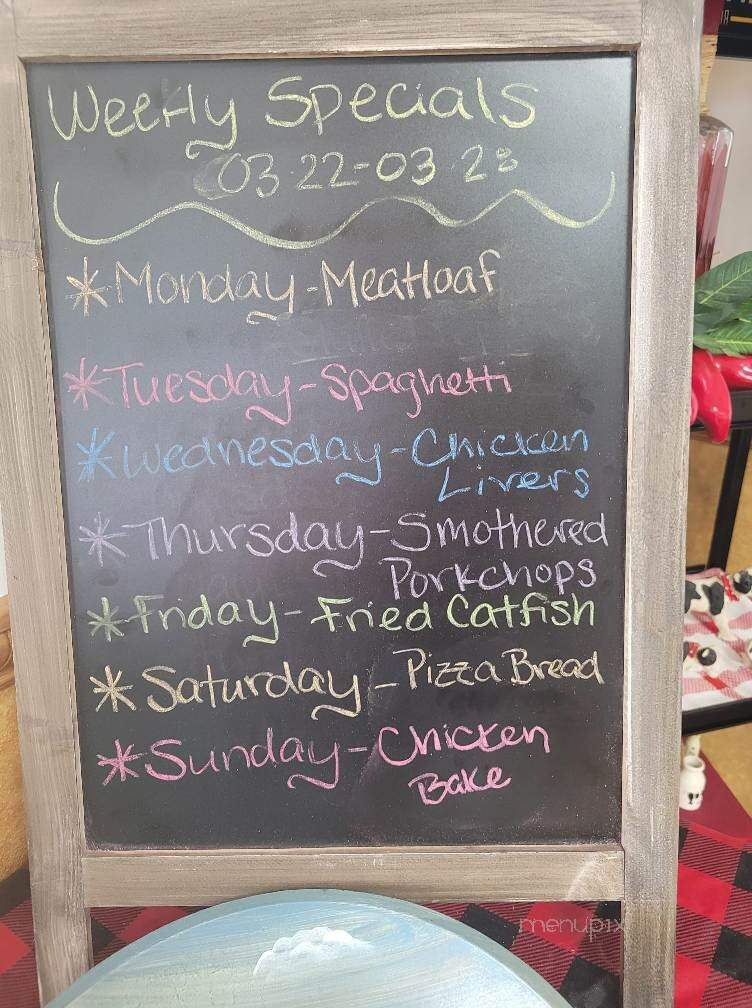 Weekly Specials
03.22-03.28
*Monday-Meatloaf
*Tuesday-Spaghetti
*Wednesday-Chicken
Livers
*Thursday-Smothered
Porkchops
*Friday-Fried Catfish
*Saturday-Pizza Bread
*Sunday-Chicken
Bake
menupix